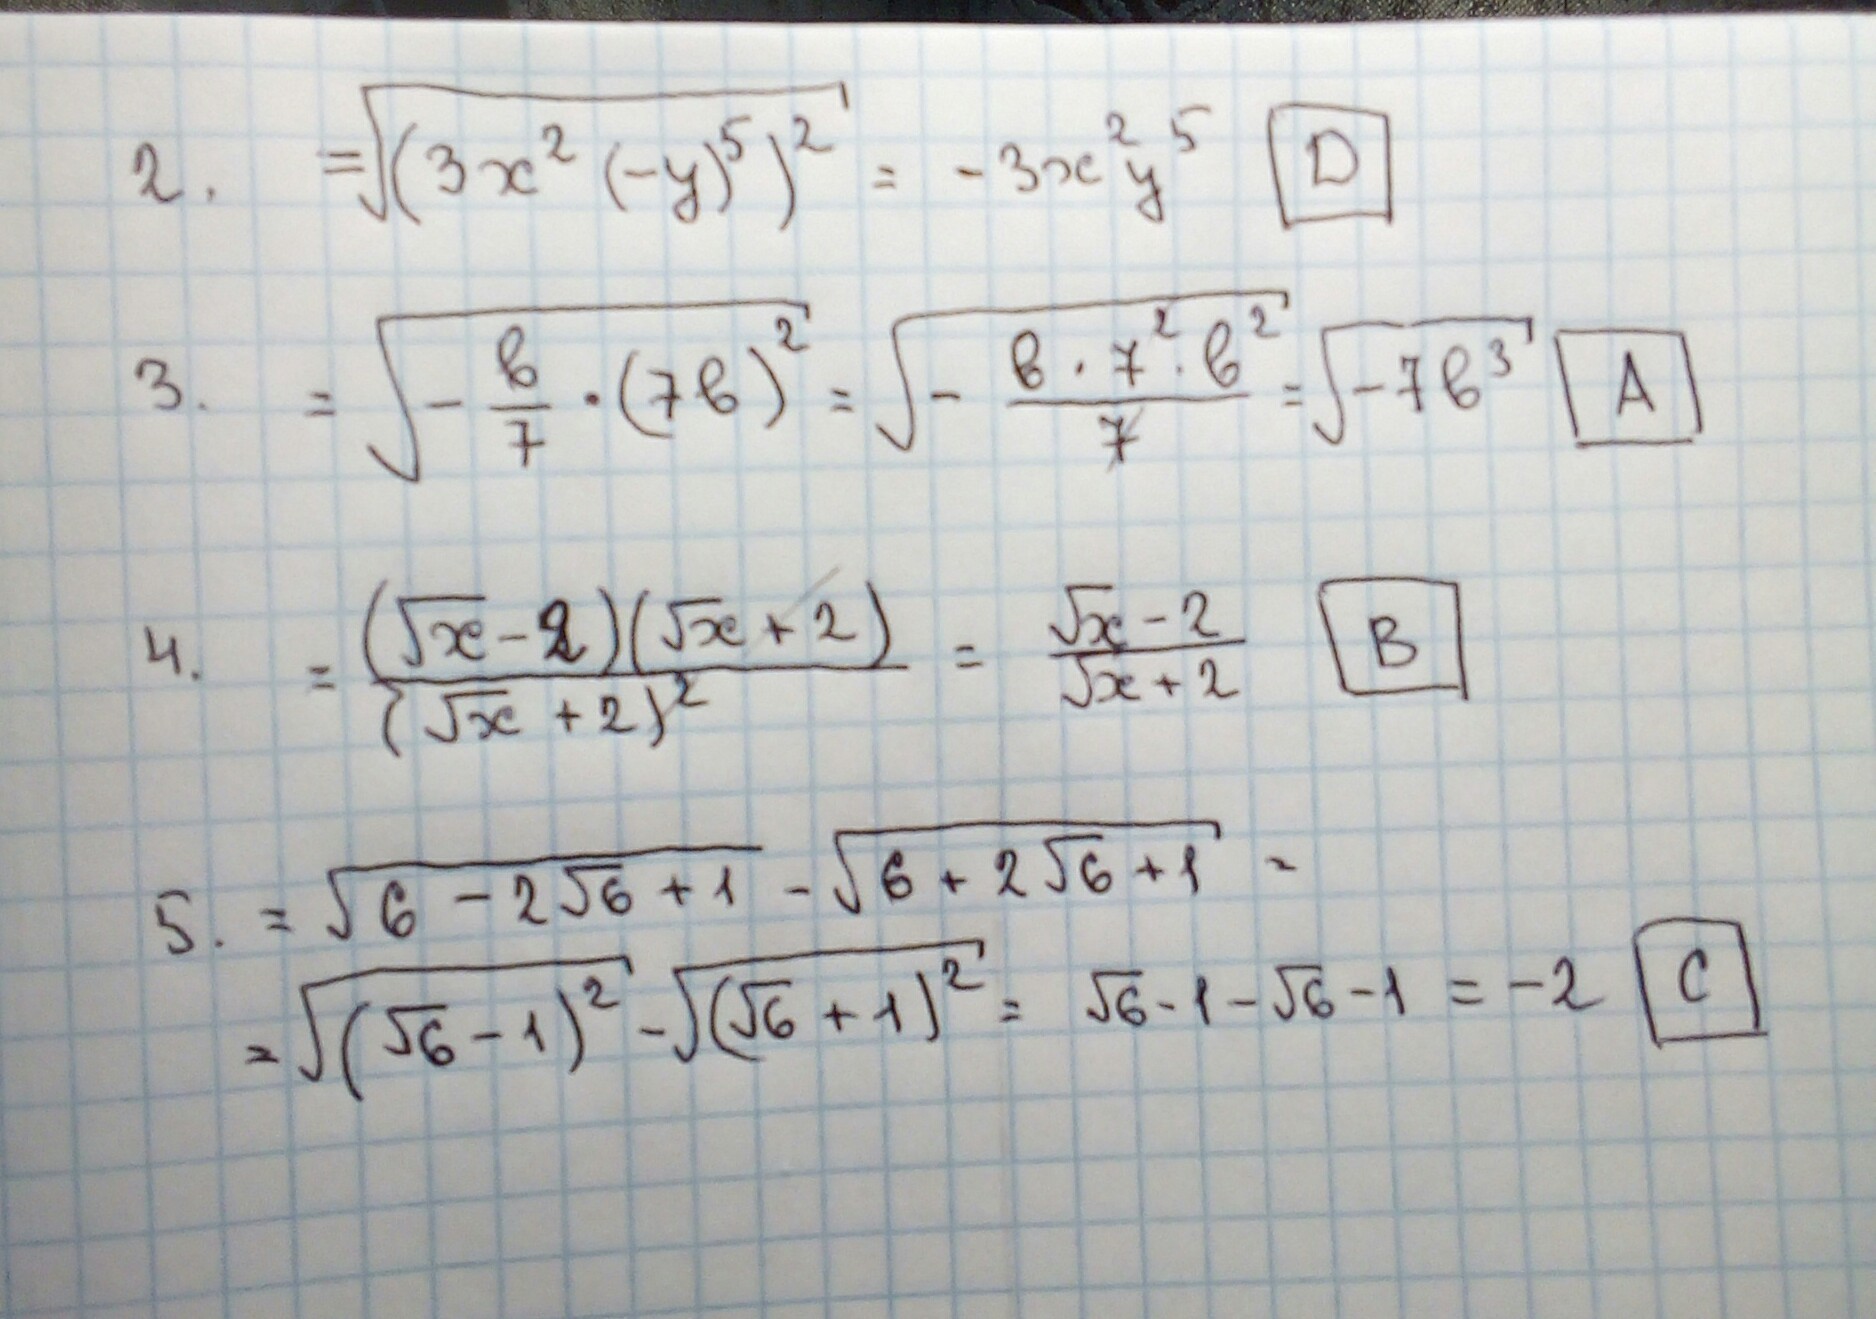 2. =√(3x²(-y)⁵)² = -3x²y⁵ D
3. = √-в/7 · (7в)² = √-в·7²·в²/7 = √-7в³ A
4. = (√x-2)(√x+2)/(√x+2)² = √x-2/√x+2 B
5. = √6-2√6+1 - √6+2√6+1 =
= √(√6-1)² - √(√6+1)² = √6-1-√6-1 = -2 C